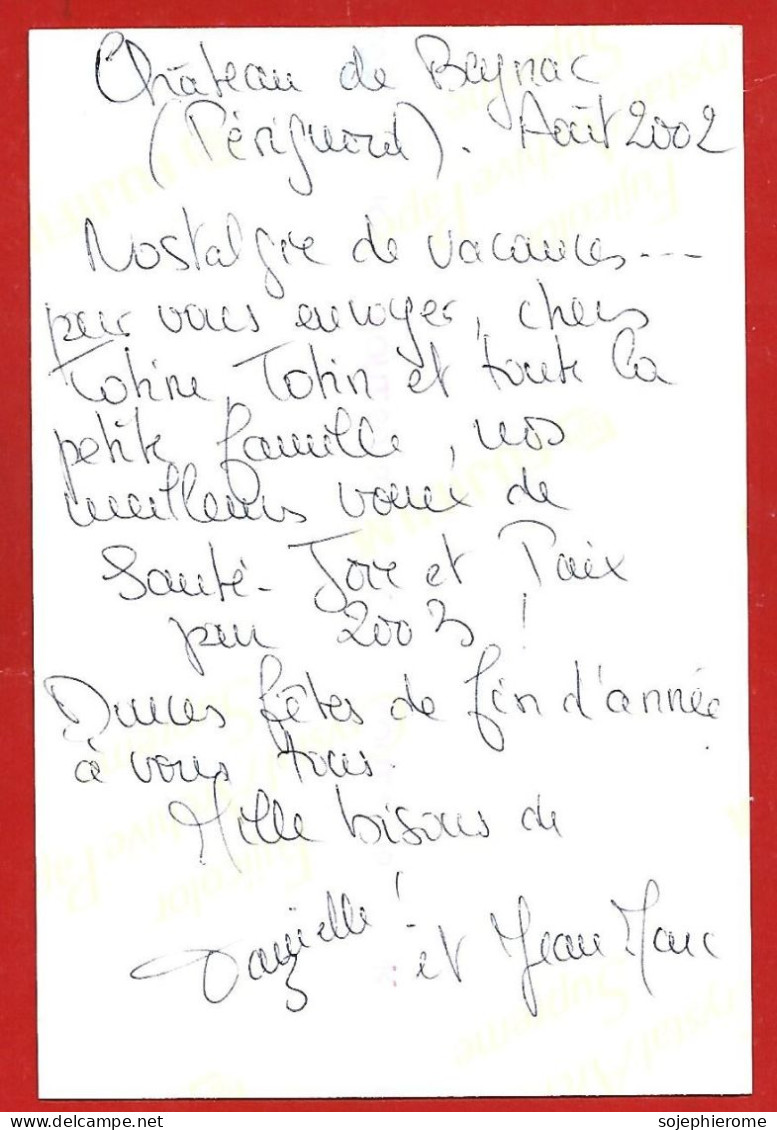 Château de Beynac
(Périgord). Août 2002
Nostalgie de vacances...
pour vous envoyer, chers
Totine, Totin et toute la
petite famille, nos
meilleurs vœux de
Santé - Joie et Paix
pour 2003 !
Douces fêtes de fin d'année
à vous tous.
Mille bisous de
Danielle ! et Jean Marc
sojephierome